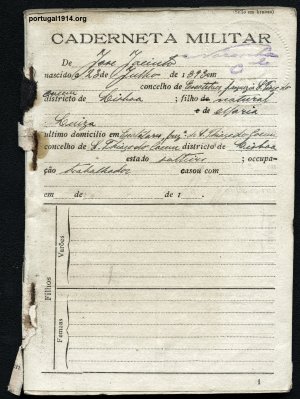 portugal1914.org
(Selo em branco)
CADERNETA MILITAR
De José Jacinto
nascido a 23 de Julho de 1893 em
concelho de
districto de Lisboa; filho natural
e de Maria
Luiza
ultimo domicilio em
concelho de S. Thiago do Cacem districto de Lisboa
estado solteiro; occupa-
ção trabalhador casou com
em de de 1
Filhos
Varões
Femeas
1